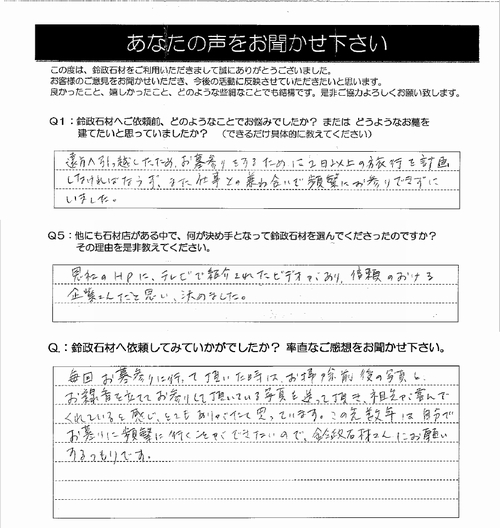 あなたの声をお聞かせ下さい
この度は、鈴政石材をご利用いただきまして誠にありがとうございました。
お客様のご意見をお聞かせいただき、今後の活動に反映させていただきたいと思います。
良かったこと、嬉しかったこと、どのような些細なことでも結構です。是非ご協力よろしくお願い致します。
Q1：鈴政石材へご依頼前、どのようなことでお悩みでしたか？ または どうようなお墓を
建てたいと思っていましたか？ （できるだけ具体的に教えてください）
遠方へ引っ越ししたため、お墓参りをするために2日以上の旅行を計画
しなければならず、また仕事との兼ね合いで頻繁にお参りできずに
いました。
Q5：他にも石材店がある中で、何が決め手となって鈴政石材を選んでくださったのですか？
その理由を是非教えてください。
貴社のHPに、テレビで紹介されたビデオがあり、信頼のおける
企業さんだと思い、決めました。
Q.：鈴政石材へ依頼してみていかがでしたか？ 率直なご感想をお聞かせ下さい。
毎回お墓参りに行って頂いた時は、お掃除前後の写真と、
お線香を立ててお参りして頂いている写真を送って頂き、祖先が喜んで
くれていると感じ、とてもありがたく思っています。この先数年は自分で
お墓参りに頻繁に行くことができないので、鈴政石材さんにお願い
するつもりです。